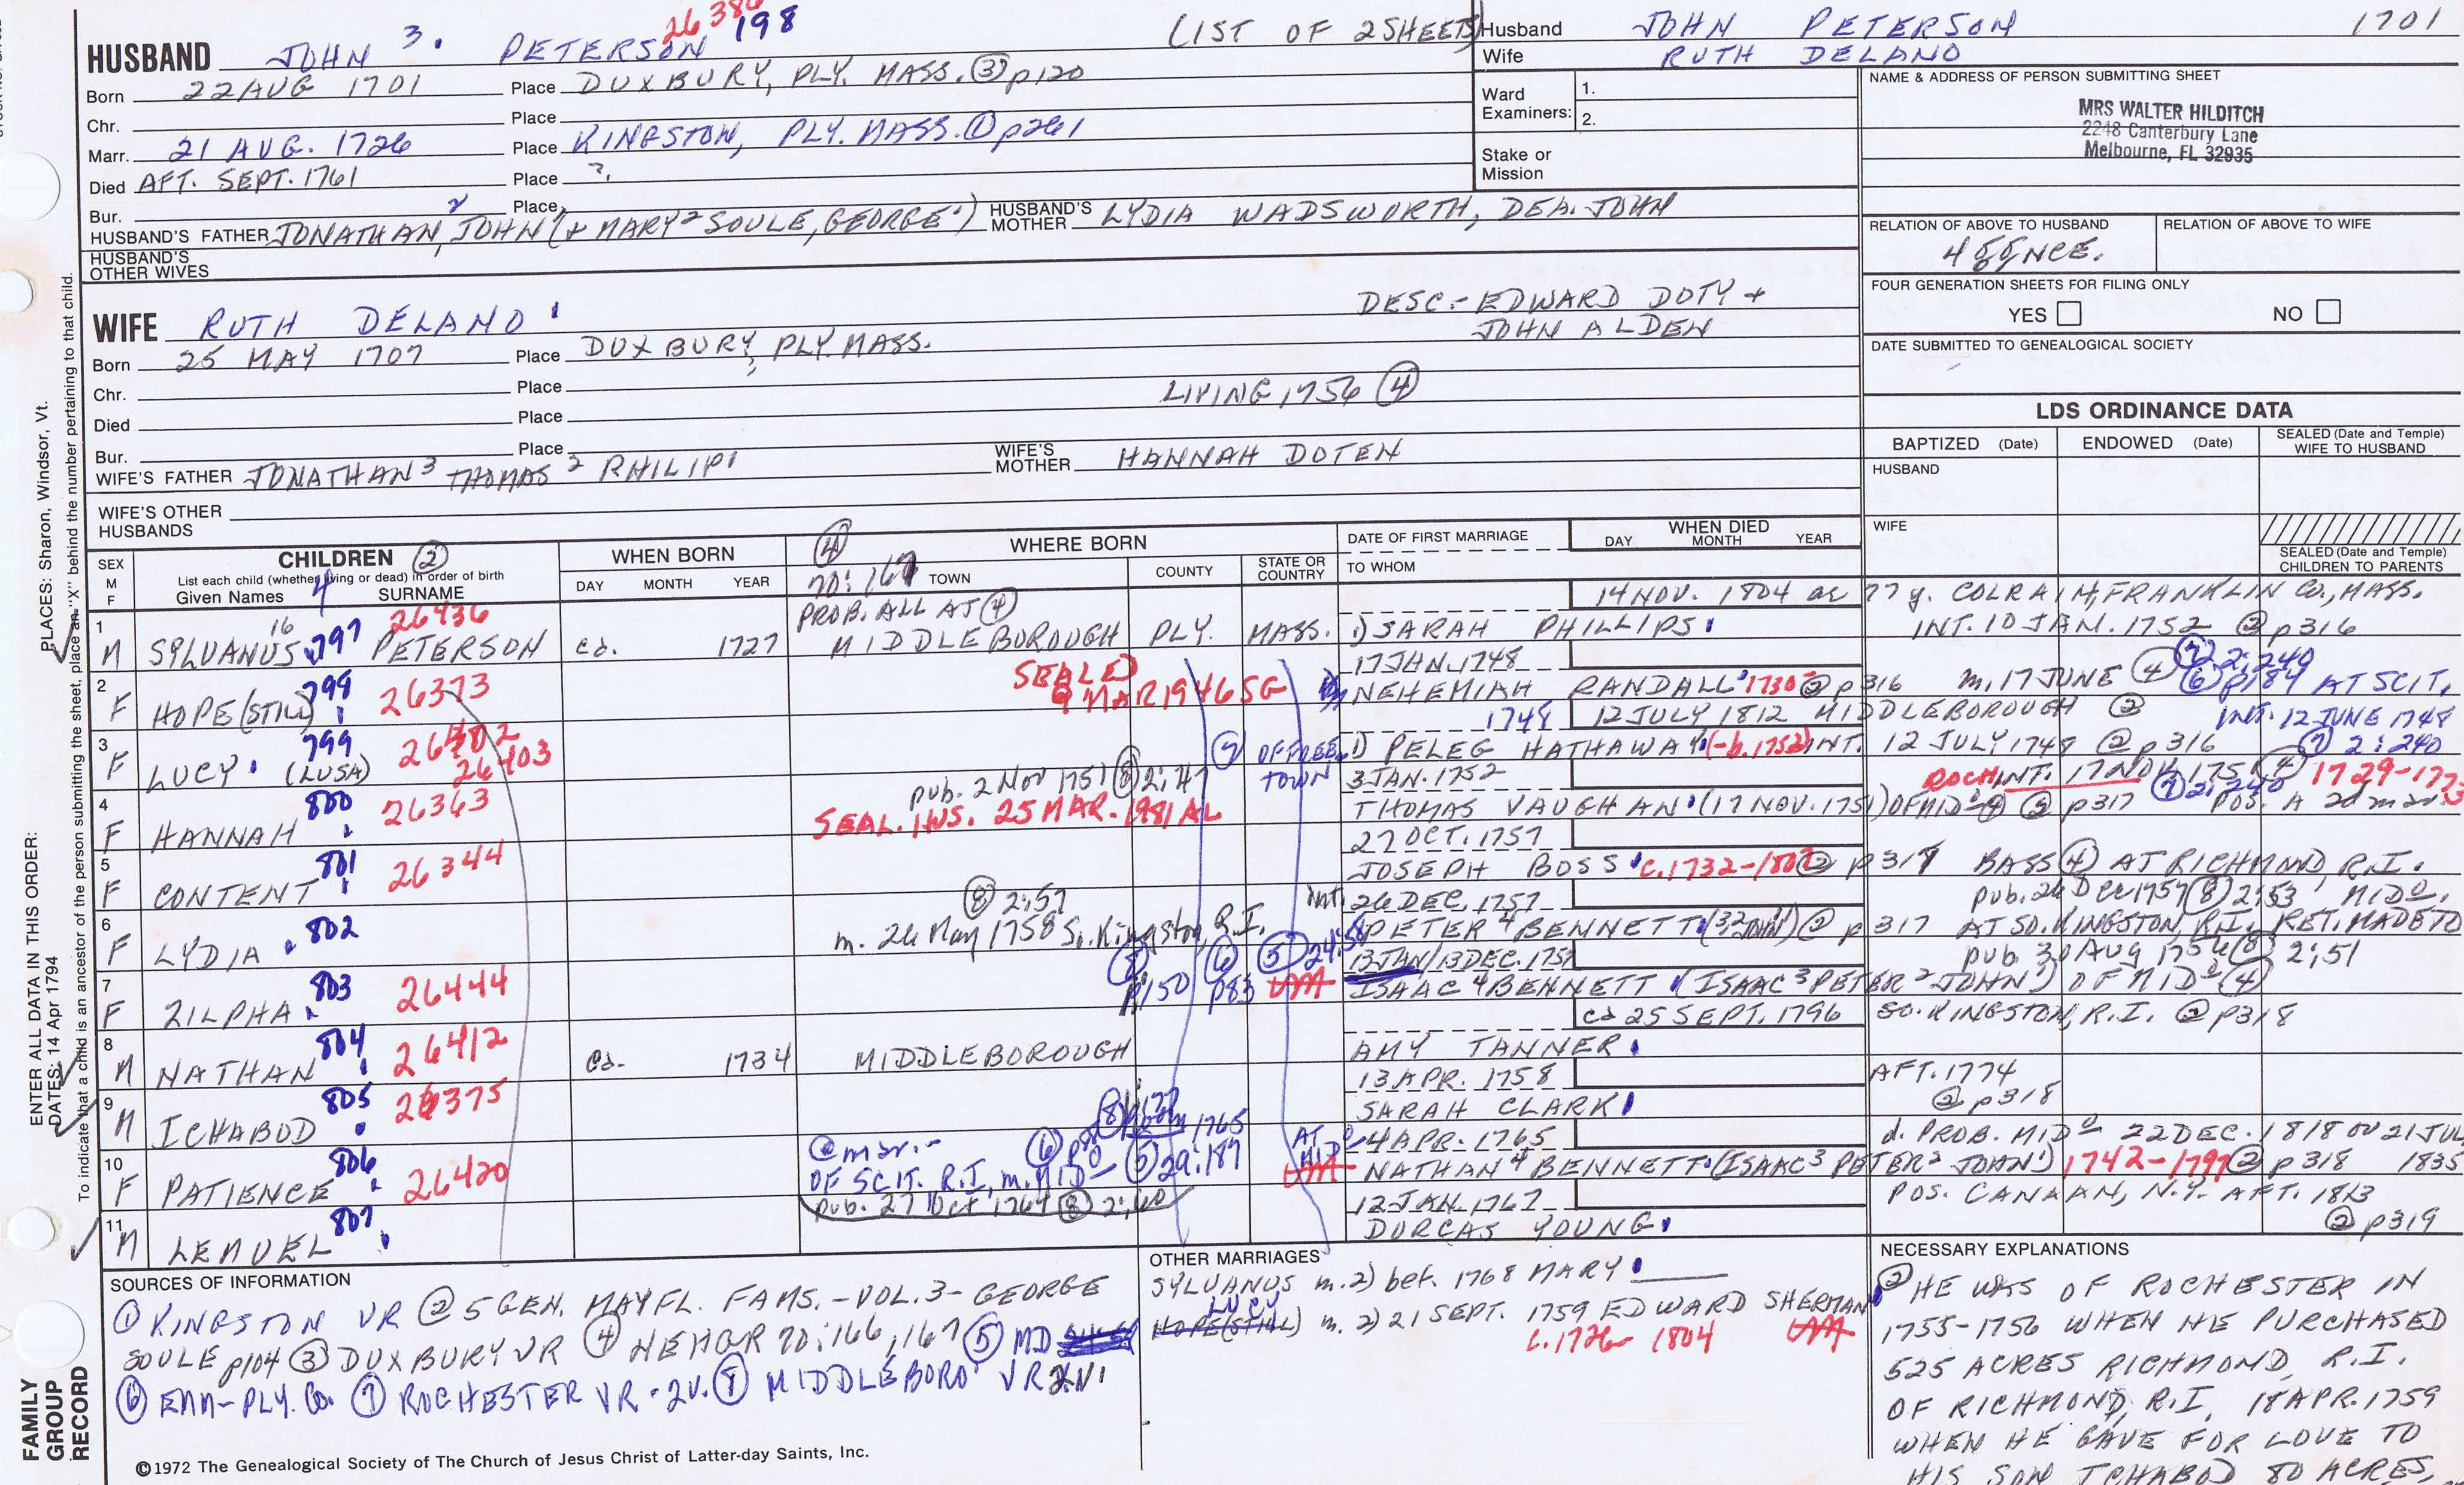 26386
HUSBAND JOHN 3. PETERSON 198 (1ST OF 2 SHEETS)
Born 22 AUG 1701 Place DUXBURY, PLY. MASS. ③ p120
Chr. Place
Marr. 21 AUG. 1726 Place KINGSTON, PLY. MASS. ① p261
Died AFT. SEPT. 1761 Place ?
Bur. Place
HUSBAND'S FATHER JONATHAN, JOHN (+ MARY 2 SOULE, GEORGE 1) HUSBAND'S MOTHER LYDIA WADSWORTH, DEA. JOHN
HUSBAND'S OTHER WIVES
WIFE RUTH DELANO
DESC- EDWARD DOTY +
JOHN ALDEN
Born 25 MAY 1707 Place DUXBURY, PLY. MASS.
Chr. Place
LIVING 1756 ④
Died Place
Bur. Place
WIFE'S FATHER JONATHAN 3 THOMAS 2 PHILIP 1 WIFE'S MOTHER HANNAH DOTEN
WIFE'S OTHER HUSBANDS
Husband JOHN PETERSON 1701
Wife RUTH DELANO
Ward Examiners: 1.
2.
Stake or Mission
NAME & ADDRESS OF PERSON SUBMITTING SHEET
MRS WALTER HILDITCH
2248 Canterbury Lane
Melbourne, FL 32935
RELATION OF ABOVE TO HUSBAND RELATION OF ABOVE TO WIFE
4 ggNCE.
FOUR GENERATION SHEETS FOR FILING ONLY
YES NO
DATE SUBMITTED TO GENEALOGICAL SOCIETY
LDS ORDINANCE DATA
BAPTIZED (Date) ENDOWED (Date) SEALED (Date and Temple) WIFE TO HUSBAND
HUSBAND
WIFE
SEALED (Date and Temple) CHILDREN TO PARENTS
SEX M F
CHILDREN ②
List each child (whether living or dead) in order of birth
Given Names 4 SURNAME
WHEN BORN
DAY MONTH YEAR
WHERE BORN
④ 70:167 TOWN COUNTY STATE OR COUNTRY
DATE OF FIRST MARRIAGE
TO WHOM
WHEN DIED
DAY MONTH YEAR
PROB. ALL AT ④
14 NOV. 1804 ae 77 y. COLRAIN, FRANKLIN Co., MASS.
1 M SYLVANUS 16 797 26436 PETERSON ca. 1727 MIDDLEBOROUGH PLY. MASS. 1) SARAH PHILLIPS INT. 10 JAN. 1752 ② p316
17 JAN. 1748
2 F HOPE(STILL) 798 26373 SEALED 9 MAR 1946 SG NEHEMIAH RANDALL 1730- ② p316 m. 17 JUNE ④ ⑦ 2:240 ⑥ p184 AT SCIT.
1748 12 JULY 1812 MIDDLEBOROUGH ② INT. 12 JUNE 1748
3 F LUCY (LUSA) 799 26402 26403 ⑦ OF FREETOWN 1) PELEG HATHAWAY (-b. 1752) INT. 12 JULY 1749 ② p316 ⑦ 2:240
pub. 2 Nov 1751 ⑧ 2:47 3 JAN. 1752 ROCH. INT. 17 NOV. 1751 ④
4 F HANNAH 800 26363 SEAL. HUS. 25 MAR. 1981 AL THOMAS VAUGHAN (17 NOV. 1751) OF MID ④ ② p317 ⑦ 2:240
27 OCT. 1757
5 F CONTENT 801 26344 JOSEPH BOSS c. 1732-1807 ② p317 BASS ④ AT RICHMOND R.I.
⑧ 2:57 int. 26 DEC. 1757 pub. 26 Dec 1757 ⑧ 2:53 MIDO.
6 F LYDIA 802 m. 26 May 1758 So. Kingston, R.I. PETER 4 BENNETT (3 2 JOHN 1) ② p317 AT SO. KINGSTON, R.I. RET. MADE TO
13 JAN/13 DEC. 1757 pub 30 Aug 1756 ⑧ 2:51
7 F ZILPHA 803 26444 p150 ⑥ p83 ⑤ ISAAC 4 BENNETT (ISAAC 3 PETER 2 JOHN 1) OF MIDO ④
ca 25 SEPT. 1796 SO. KINGSTON, R.I. ② p318
8 M NATHAN 804 26412 ca. 1734 MIDDLEBOROUGH AMY TANNER
13 APR. 1758 AFT. 1774
9 M ICHABOD 805 26375 SARAH CLARK ② p318
@ mar.- ⑤ 29:187 4 APR. 1765 d. PROB. MIDO 22 DEC. 1818 OR 21 JUL
10 F PATIENCE 806 26420 OF SCIT. R.I, m. MID AT MIDO NATHAN 4 BENNETT (ISAAC 3 PETER 2 JOHN 1) 1742-1799 ② p318 1835
pub. 27 Oct 1764 ⑧ 2:60 12 JAN. 1767 POS. CANAAN, N.Y. AFT. 1813
11 M LEMUEL 807 DORCAS YOUNG ② p319
SOURCES OF INFORMATION
① KINGSTON VR ② 5 GEN. MAYFL. FAMS. - VOL. 3 - GEORGE
SOULE p104 ③ DUXBURY VR ④ NEHGR 70:166, 167 ⑤ MD
⑥ EMM-PLY. Co. ⑦ ROCHESTER VR - 2V. ⑧ MIDDLEBORO VR
OTHER MARRIAGES
SYLVANUS m. 2) bef. 1768 MARY
LUCY
HOPE(STILL) m. 2) 21 SEPT. 1759 EDWARD SHERMAN
c. 1726- 1804
NECESSARY EXPLANATIONS
② HE WAS OF ROCHESTER IN
1755-1756 WHEN HE PURCHASED
525 ACRES RICHMOND, R.I.
OF RICHMOND, R.I, 18 APR. 1759
WHEN HE GAVE FOR LOVE TO
HIS SON ICHABOD 80 ACRES,
©1972 The Genealogical Society of The Church of Jesus Christ of Latter-day Saints, Inc.
FAMILY GROUP RECORD
ENTER ALL DATA IN THIS ORDER:
DATES: 14 Apr 1794
PLACES: Sharon, Windsor, Vt.
To indicate that a child is an ancestor of the person submitting the sheet, place an "X" behind the number pertaining to that child.